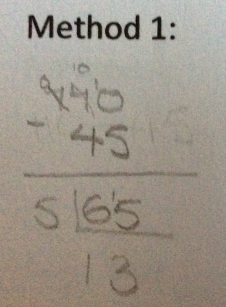 Method 1:
0 10 1
110
- 45
5 6 1 5
13